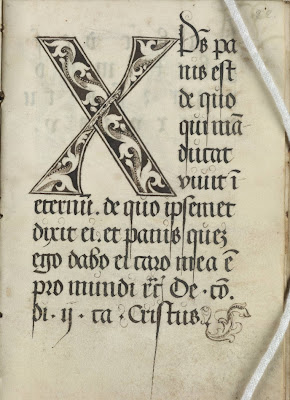 Xps pa
nis est
de quo
qui mā
ducat
viuit ī
eternū. de quo ipsemet
dixit ei. et panis quez
ego dabo el caro mea ē
pro mundi &c̄ De · cō.
di · ij · ca · Cristus.